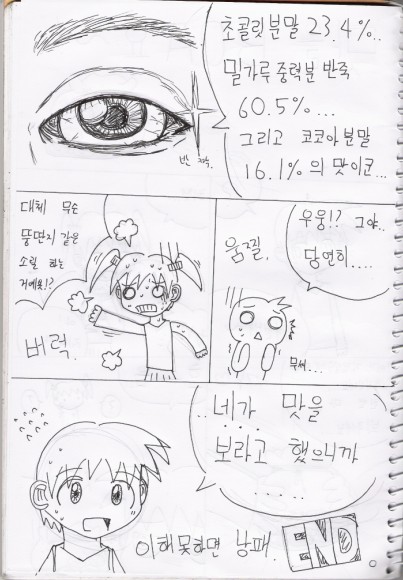 초콜릿분말 23.4%..
밀가루 중력분 반죽
60.5%...
그리고 코코아 분말
16.1% 의 맛이군...
반 짝.
대체 무슨
뚱딴지 같은
소릴 하는
거예요!?
버럭.
우웅!? 그야..
당연히....
움찔.
무써...
..네가 맛을
보라고 했으니까
.....
이해 못하면 낭패.
END